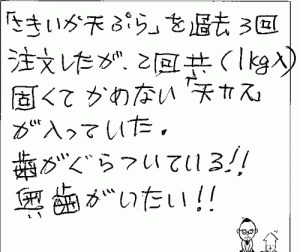 「さきいか天ぷら」を過去3回
注文したが、2回共(1kg入)
固くてかめない「天カス」が
が入っていた。
歯がぐらついている!!
奥歯がいたい!!